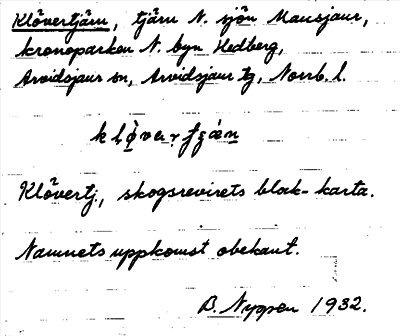 Klövertjärn, tjärn N. sjön Mausjaur,
kronoparken N. byn Hedberg,
Arvidsjaur sn, Arvidsjaur tg, Norrb. l.
Klövertj, skogsrevirets blak-karta.
Namnets uppkomst obekant.
B. Nyppen 1932.